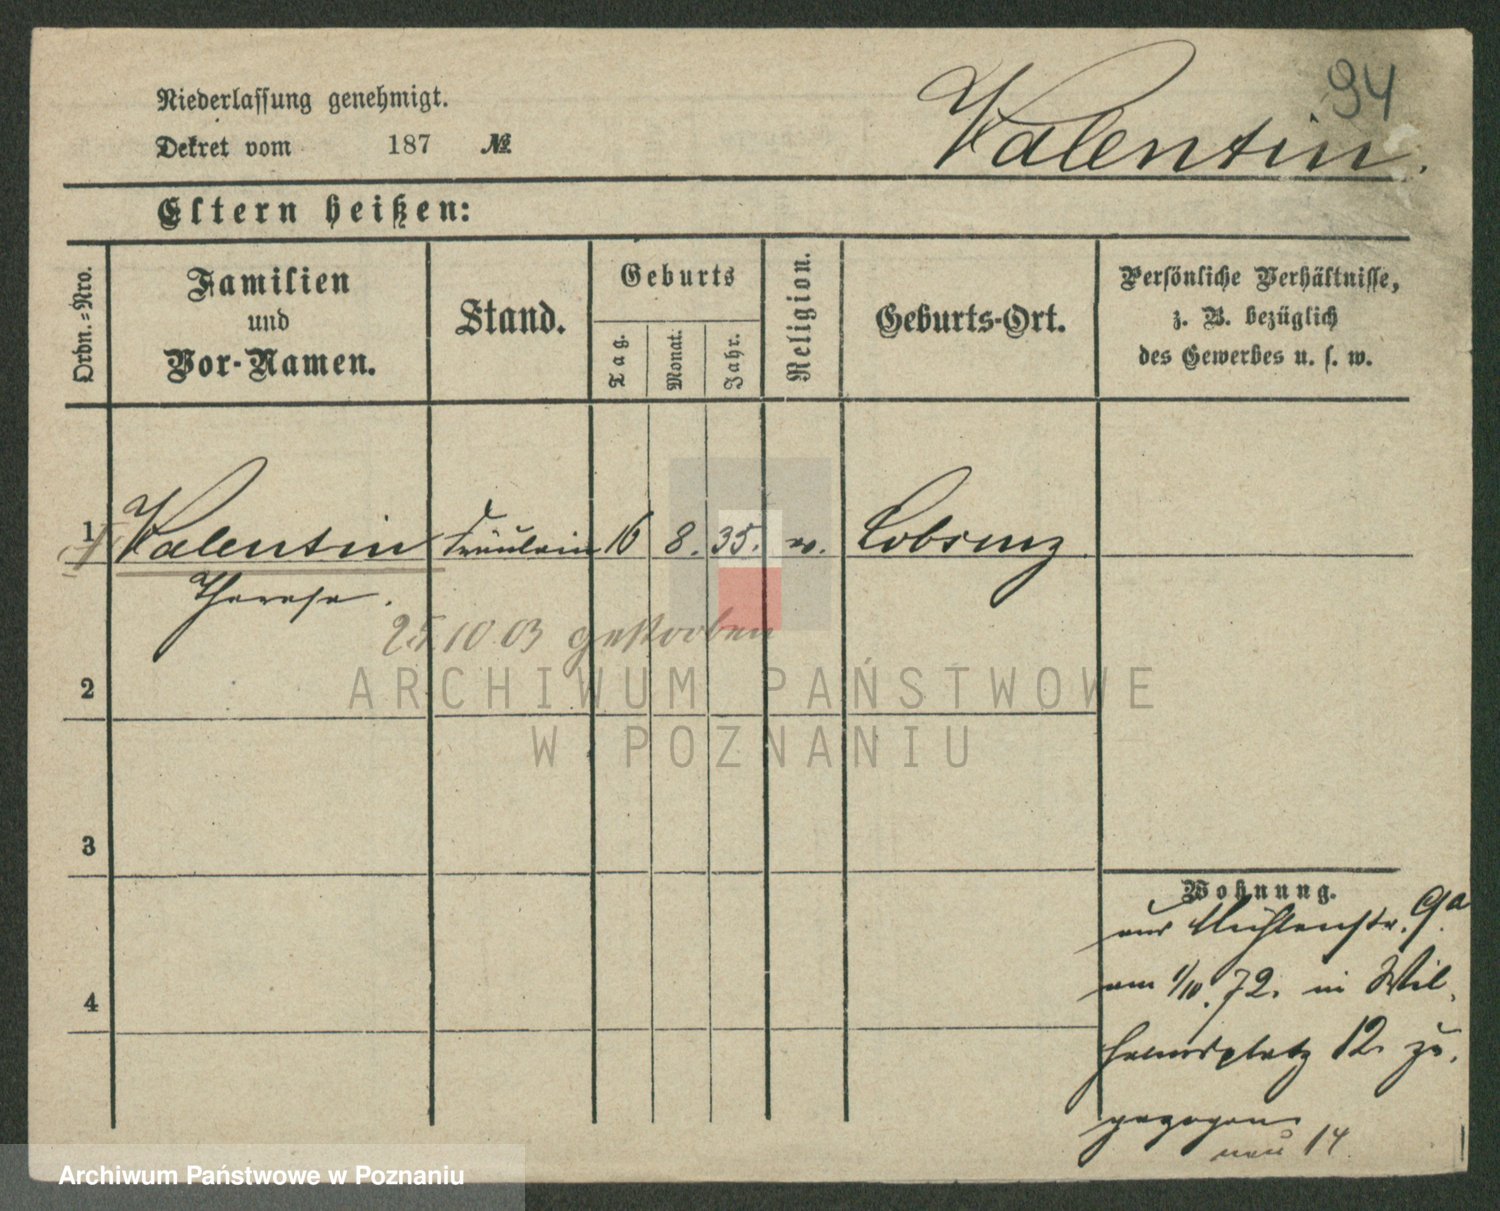 94
Niederlassung genehmigt.
Valentin.
Dekret vom 187 №
Eltern heißen:
Ordn.=Nro.
Familien
und
Vor-Namen.
Stand.
Geburts
Tag.
Monat.
Jahr.
Religion.
Geburts-Ort.
Persönliche Verhältnisse,
z. B. bezüglich
des Gewerbes u. s. w.
1 Valentin Fräulein 16 8. 35. Lobsenz
Therese.
25.10.03 gestorben
ARCHIWUM PAŃSTWOWE
W POZNANIU
2
3
4
Wohnung.
aus Mühlenstr. 9a
am 1/10. 72. in Wil-
helmsplatz 12. zu-
gezogen
neu 14
Archiwum Państwowe w Poznaniu